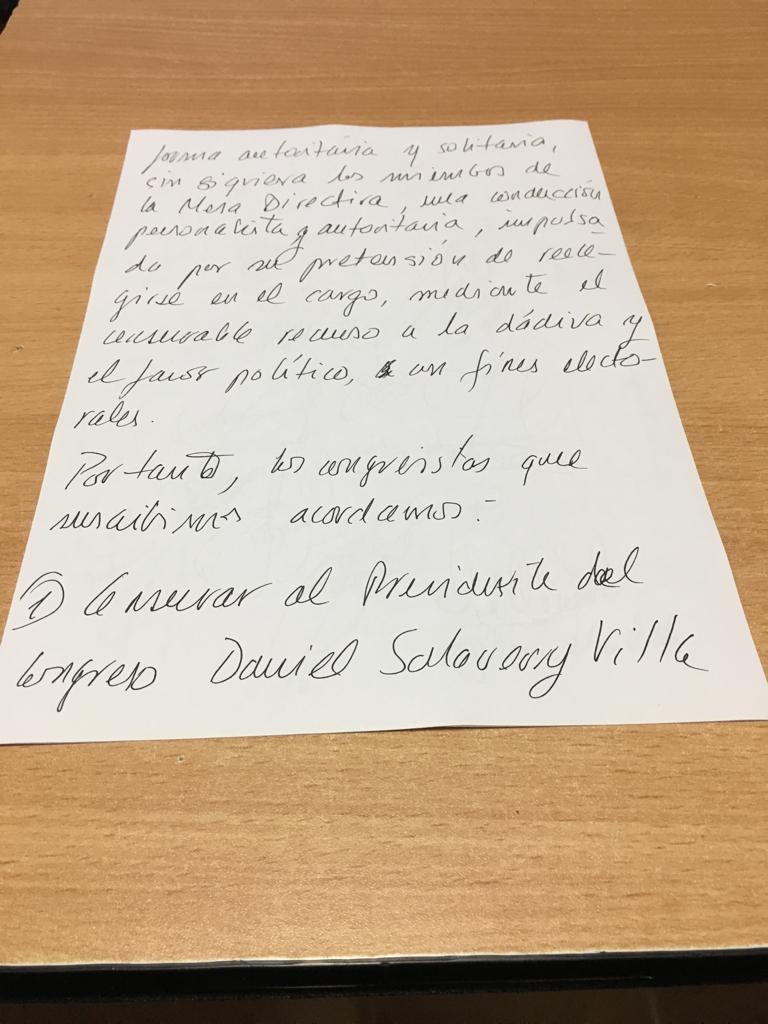 forma autoritaria y solitaria,
sin siquiera los miembros de
la Mesa Directiva, una conducción
personalista y autoritaria, impulsa-
da por su pretensión de reele-
girse en el cargo, mediante el
censurable recurso a la dádiva y
el favor político, con fines electo-
rales.
Por tanto, los congresistas que
suscribimos acordamos:
① Censurar al Presidente del
Congreso Daniel Salaverry Villa